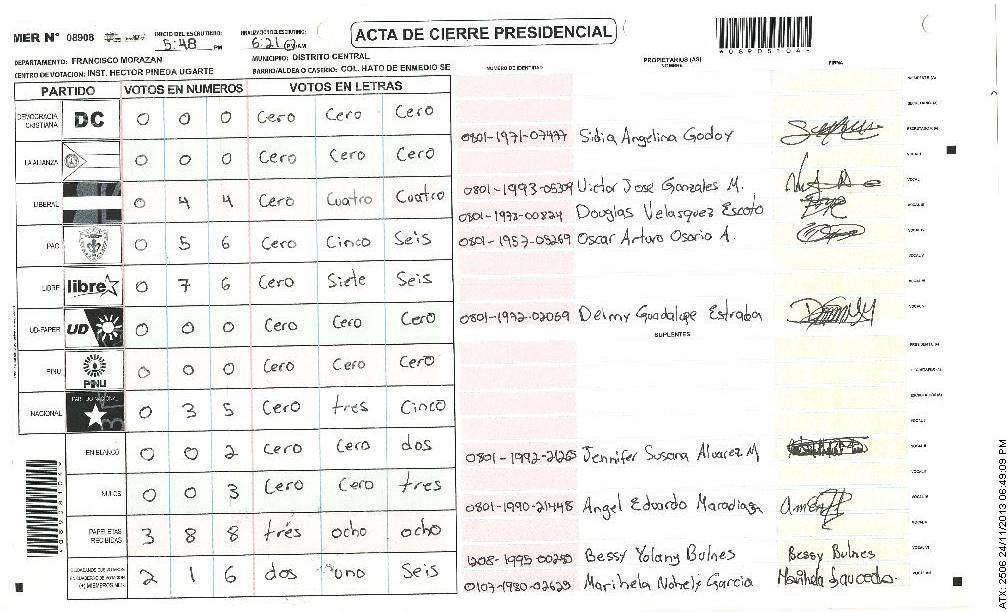 MER N° 08908
INICIO DEL ESCRUTINIO: 5:48 PM
FINALIZACION DEL ESCRUTINIO: 6:21 PM AM
ACTA DE CIERRE PRESIDENCIAL
DEPARTAMENTO: FRANCISCO MORAZAN
MUNICIPIO: DISTRITO CENTRAL
CENTRO DE VOTACION: INST. HECTOR PINEDA UGARTE
BARRIO/ALDEA O CASERIO: COL. HATO DE ENMEDIO SE
PARTIDO VOTOS EN NUMEROS VOTOS EN LETRAS
DEMOCRACIA CRISTIANA DC 0 0 0 Cero Cero Cero
LA ALIANZA 0 0 0 Cero Cero Cero
LIBERAL 0 4 4 Cero Cuatro Cuatro
PAC 0 5 6 Cero Cinco Seis
LIBRE libre 0 7 6 Cero Siete Seis
UD-FAPER UD 0 0 0 Cero Cero Cero
PINU PINU 0 0 0 Cero Cero Cero
NACIONAL PARTIDO NACIONAL 0 3 5 Cero tres Cinco
EN BLANCO 0 0 2 Cero Cero dos
NULOS 0 0 3 Cero Cero tres
PAPELETAS RECIBIDAS 3 8 8 trés ocho ocho
2 1 6 dos uno Seis
NUMERO DE IDENTIDAD
PROPIETARIOS (AS)
NOMBRE
FIRMA
0801-1971-07477 Sidia Angelina Godoy
Victor Jose Gonzales M.
0801-1973-00824 Douglas Velasquez Escoto
0801-1957-05269 Oscar Arturo Osorio A.
0801-1972-02069 Delmy Guadalupe Estraba
SUPLENTES
0801-1992-21265 Jennifer Susana Alvarez M
0801-1990-21448 Angel Eduardo Maradiaga
1208-1995-00250 Bessy Yolany Bulnes Bessy Bulnes
0107-1980-02629 Marihela Nohely Garcia
ATX-2506 24/11/2013 06:49:09 PM